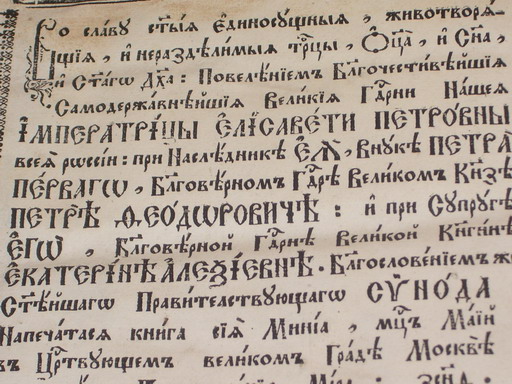 Во сла́вѹ ст҃ы́ѧ є҆диносѹ́щныѧ , животворѧ́-
щїѧ , и҆ нераздѣ́лимыѧ трⷪ҇цы , Ѻ҆ц҃а̀ , и҆ Сн҃а ,
и҆ Ст҃а́гѡ Дх҃а : Повелѣ́нїемъ Бл҃гочести́вѣйшїѧ
Самодержа́внѣйшїѧ Вели́кїѧ Гдⷭ҇рни На́шеѧ
І҆МПЕРАТРІ́ЦЫ Є҆ЛІСАВЕ́ТИ ПЕТРО́ВНЫ
всеѧ̀ рѡссі́и : при Наслѣ́дникѣ Є҆Ѧ̀ , Внꙋ́кѣ ПЕТРА̀
ПЕ́РВАГѠ , Бл҃говѣ́рномъ Гдⷭ҇рѣ Вели́комъ Кн҃зѣ
ПЕТРѢ̀ Ѳ҆ЕО́ДѠРОВИЧѢ : и҆ при Сꙋпрꙋ́гѣ
Є҆ГѠ̀ , Бл҃говѣ́рной Гдⷭ҇рнѣ Вели́кой Кн҃ги́нѣ
Є҆КАТЕРІ́НѢ А҆ЛЕѮІ́ЕВНѢ . Бл҃гослове́нїемъ же
Ст҃ѣ́йшагѡ Прави́телствꙋющагѡ СѴНО́ДА
Напеча́тасѧ кни́га сїѧ̀ Мині́а , мцⷭ҇ъ Ма́їй
въ Црⷭ҇твꙋющемъ вели́комъ Гра́дѣ Москвѣ̀